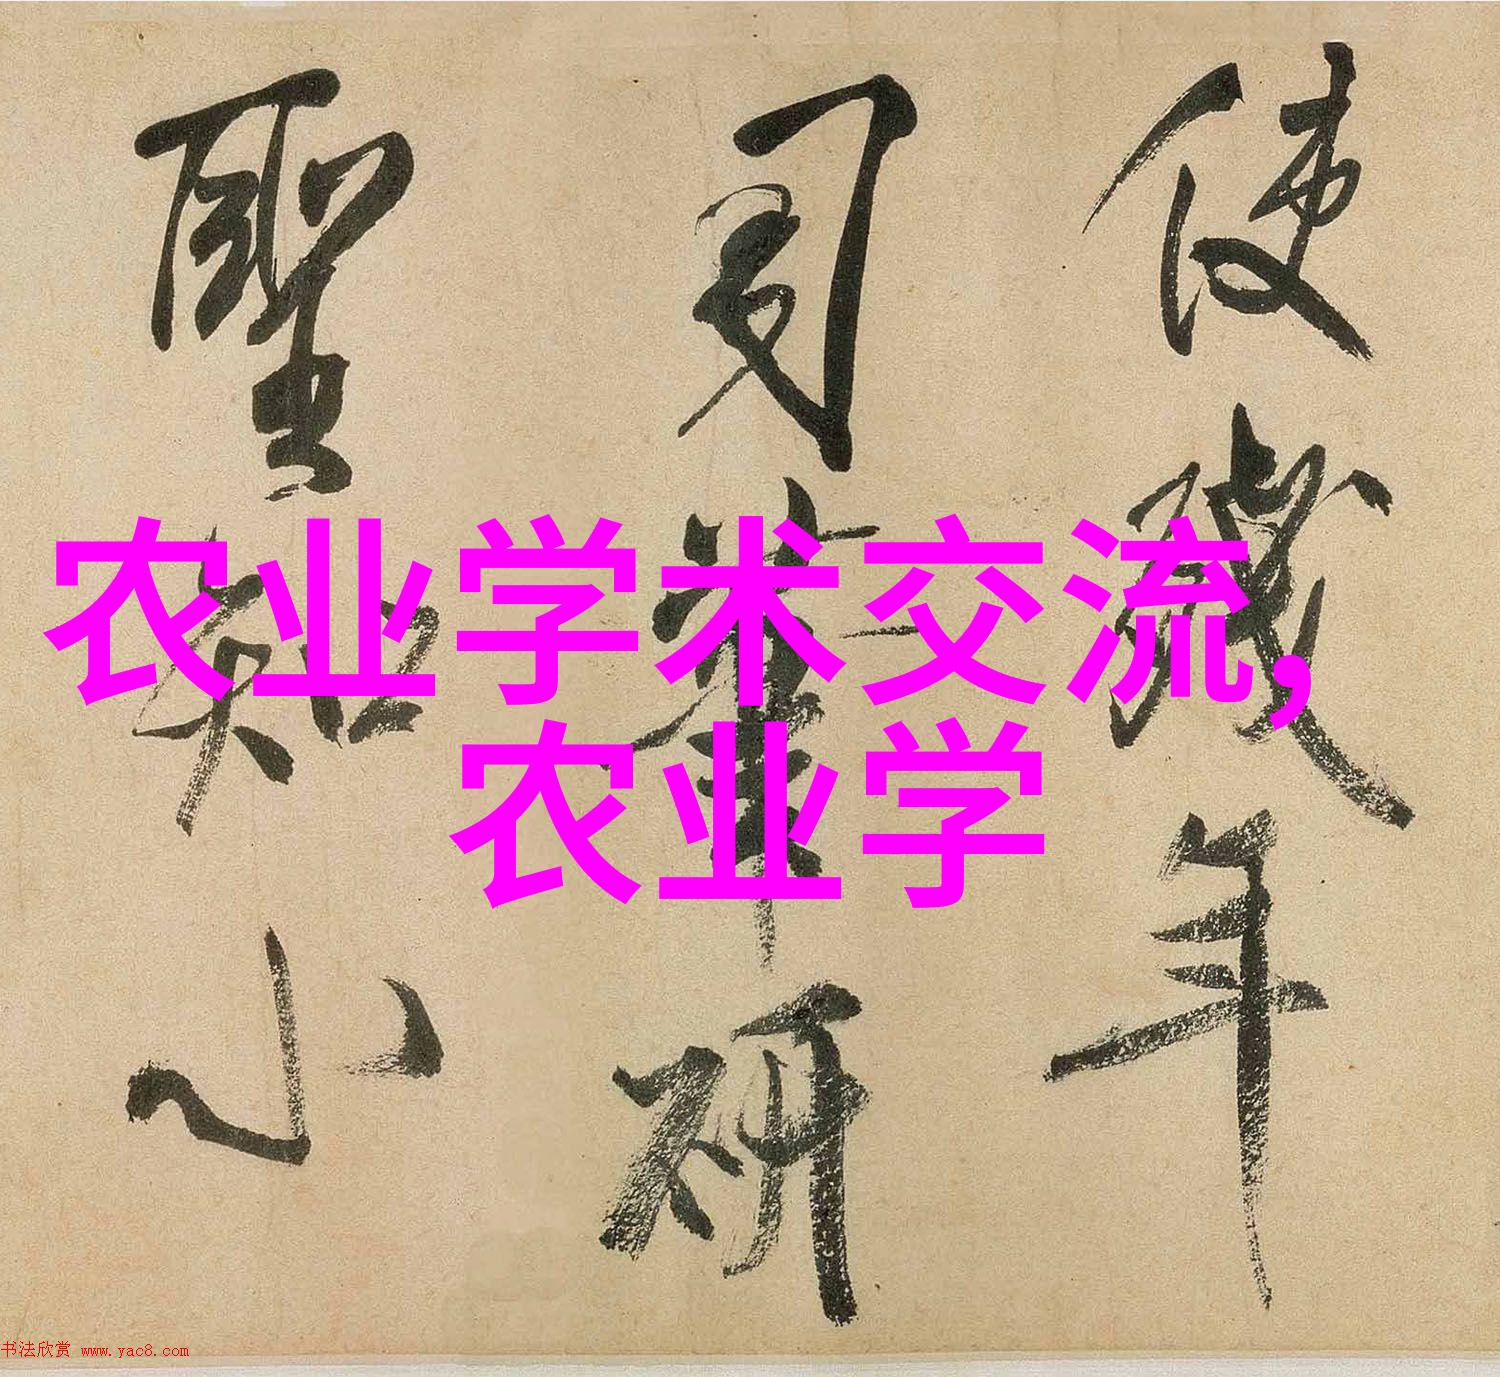 使殘年
司筆研
聖知小
农业学术交流,
农业学
书法欣赏 www.yac8.com